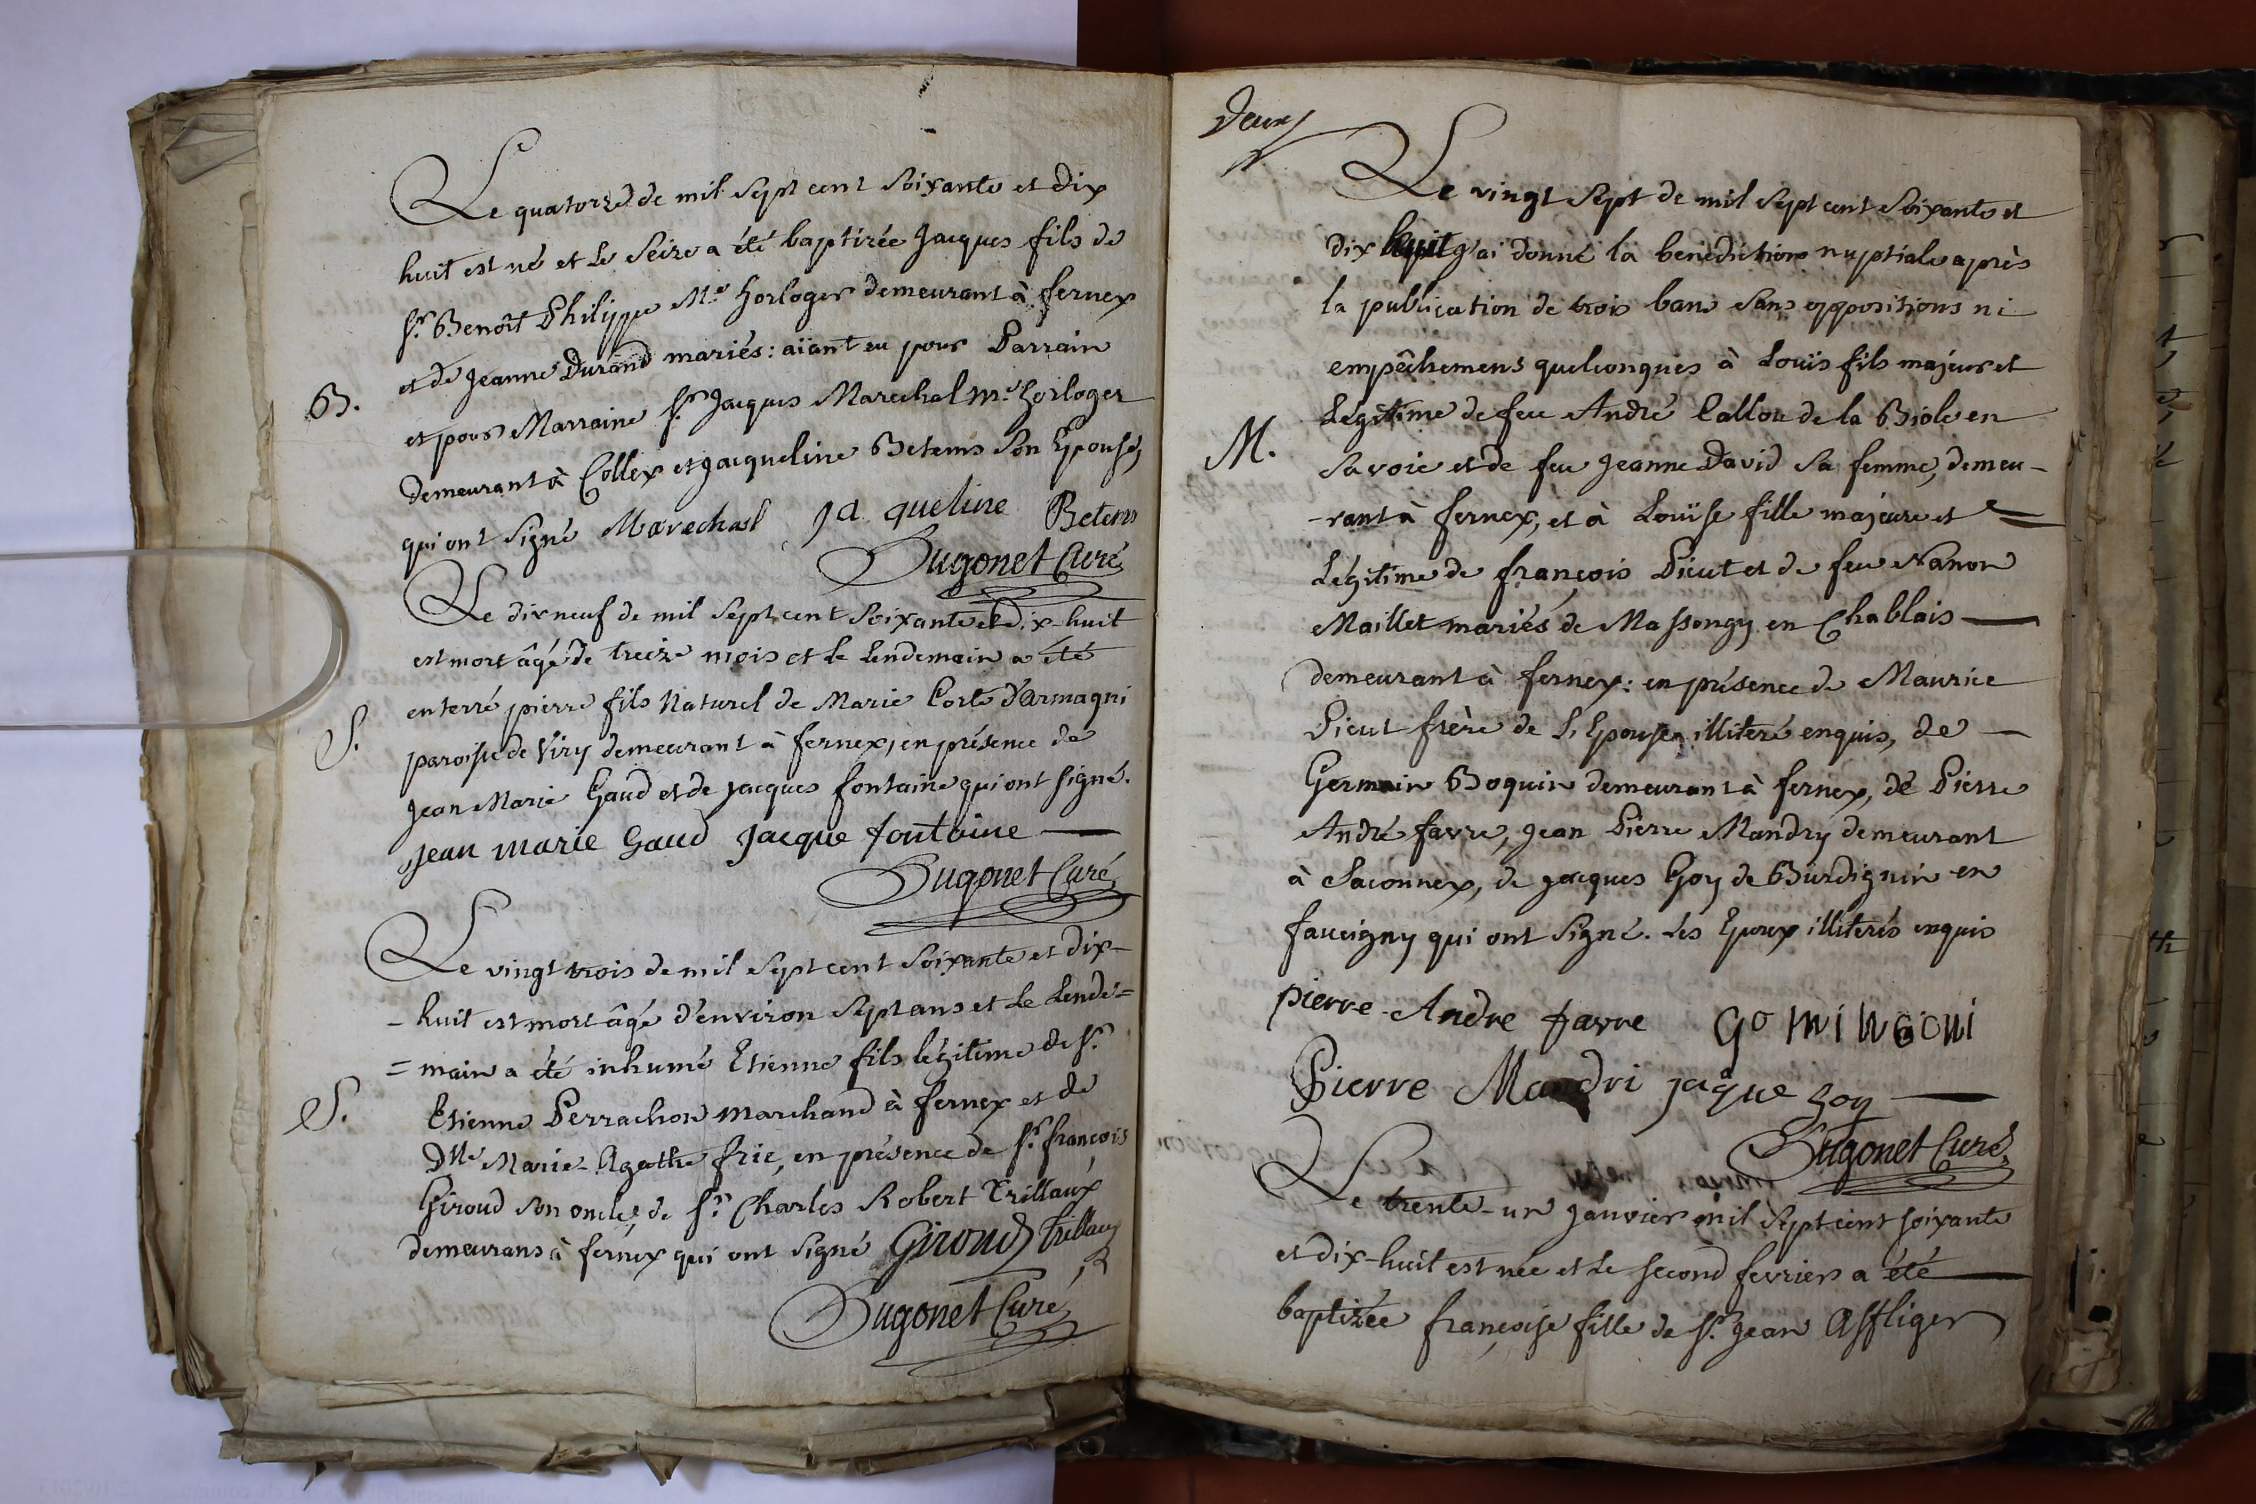 Le quatorze de mil sept cent soixante et dix
huit est né et le seize a été baptizée Jacques fils de
Sr. Benoît Philippe Me. horloger demeurant à fernex
et de Jeanne Durand mariés: aïant eu pour Parrain
B.
et pour Marraine Sr. Jacques Marechal me. horloger
demeurant à Collex et Jacqueline Betems son Epouse,
qui ont signé Marechal Ja queline Betems
Hugonet Curé
Le dixneuf de mil sept cent soixante et dix-huit
est mort âgé de treize mois et le lendemain a été
enterré pierre fils naturel de Marie Corte d'armagni
S.
paroisse de Viry demeurant à fernex, en présence de
Jean Marie Gaud et de Jacques fontaine qui ont signé.
Jean marie Gaud Jacque fontaine
Hugonet Curé
Le vingt trois de mil sept cent soixante et dix-
- huit est mort âgé d'environ sept ans et le lende=
= main a été inhumé Etienne fils légitime de Sr.
S.
Etienne Perrachon marchand à fernex et de
Dlle Marie-Agathe frie, en présence de Sr. françois
Giroud son oncle, de Sr. Charles Robert Trillaux
demeurans à fernex qui ont signé Giroud Trillaux
Hugonet Curé
Deux
Le vingt sept de mil sept cent soixante et
dix huit j'ai donné la benediction nuptiale après
la publication de trois bans sans oppositions ni
empêchemens quelconques à Louïs fils majeur et
Légitime de feu André Callou de la Biole en
M.
Savoie et de feu Jeanne David sa femme, demeu-
-rant à fernex, et à Louïse fille majeure et
Légitime de françois Picut et de feu Nanon
Maillet mariés de Massongy en Chablais
demeurant à fernex: en présence de Maurice
Picut frère de L'Epouse, illiteré enquis, de
Germain Boquin demeurant à fernex, de Pierre
André favre, Jean Pierre Mandry demeurant
à Saconnex, de Jacques Goy de Burdignin en
faucigny qui ont signé. Les Epoux illiterés enquis
pierre-Andre favre
Pierre Mandri jaque goy
Hugonet Curé
Le trente-un Janvier mil sept cent soixante
et dix-huit est née et le second fevrier a été
baptizée françoise fille de Sr. Jean Affliger